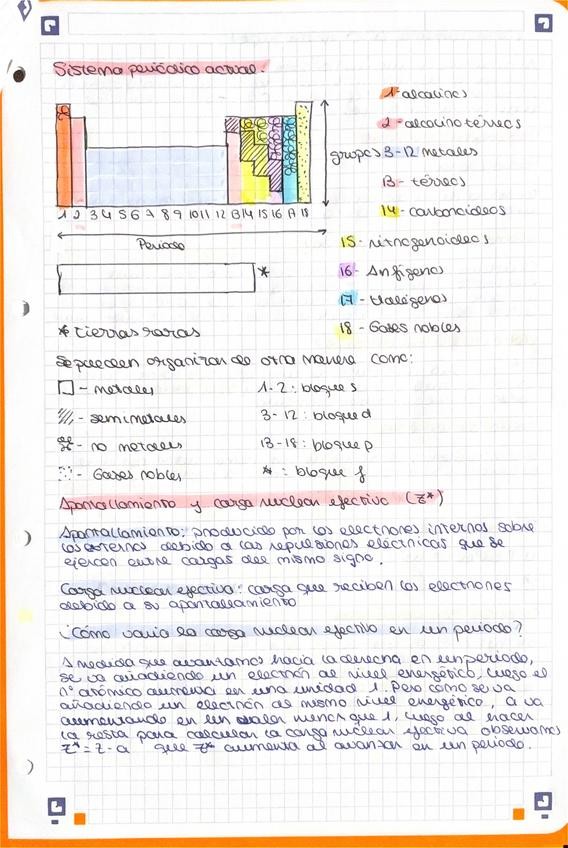 Sistema periódico actual.
1- alcalinos
2 - alcalinotérreos
grupos 3-12 metales
13 - térreos
14 - carbonoideos
15 - nitrogenoideos
16 - Anfígenos
17 - Halógenos
18 - Gases nobles
1 2 3 4 5 6 7 8 9 10 11 12 13 14 15 16 17 18
Periodo
*
* tierras raras
Se pueden organizar de otra manera como:
- metales
1-2: bloque s
- semimetales
3-12: bloque d
- no metales
13-18: bloque p
- Gases nobles
* : bloque f
Apantallamiento y carga nuclear efectiva (Z*)
Apantallamiento: producido por los electrones internos sobre
los externos debido a las repulsiones eléctricas que se
ejercen entre cargas del mismo signo.
Carga nuclear efectiva: carga que reciben los electrones
debido a su apantallamiento
¿Cómo varía la carga nuclear efectiva en un periodo?
A medida que avanzamos hacia la derecha en un periodo,
se va añadiendo un electrón al nivel energético, luego el
nº atómico aumenta en una unidad 1. Pero como se va
añadiendo un electrón al mismo nivel energético, a va
aumentando en un valor menor que 1, luego al hacer
la resta para calcular la carga nuclear efectiva observamos
Z* = Z - a que Z* aumenta al avanzar en un periodo.